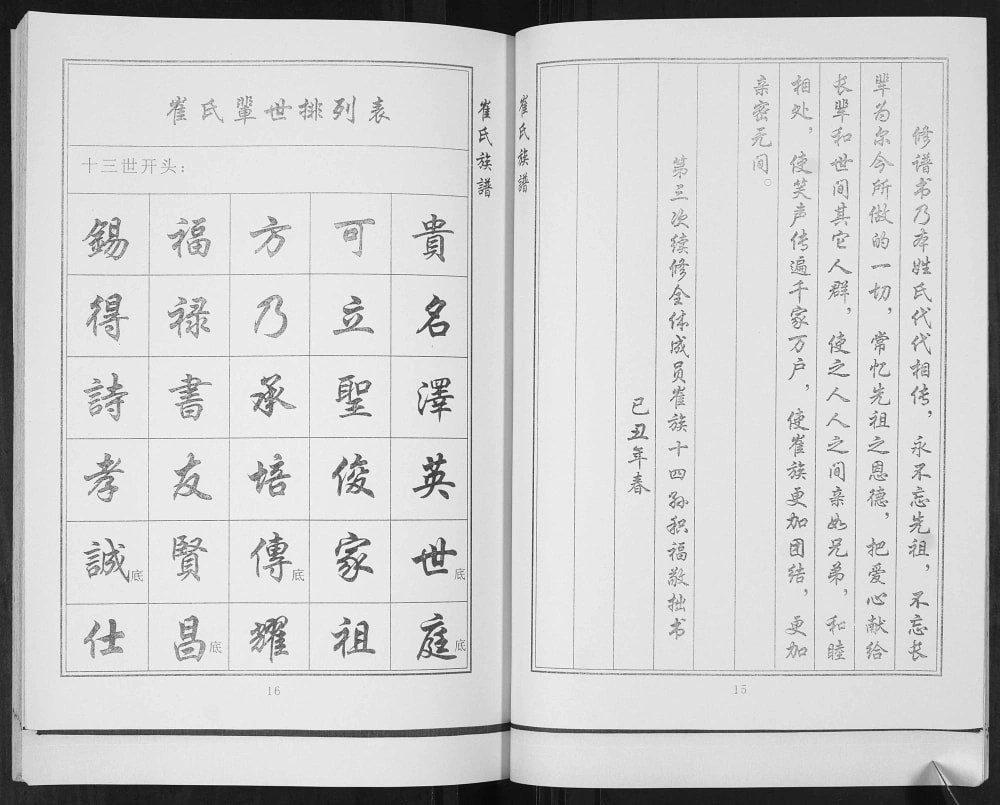 修谱书乃本姓氏代代相传，永不忘先祖，不忘长
辈为尔今所做的一切，常忆先祖之恩德，把爱心献给
长辈和世间其它人群，使之人人之间亲如兄弟，和睦
相处，使笑声传遍千家万户，使崔族更加团结，更加
亲密无间。
第三次续修全体成员崔族十四孙积福敬拙书
己丑年春
崔氏族譜
15
崔氏族譜
崔氏輩世排列表
十三世开头：
錫福方可貴
得禄乃立名
詩書承聖澤
孝友培俊英
誠底賢傳底家世底
仕昌底耀祖庭底
16